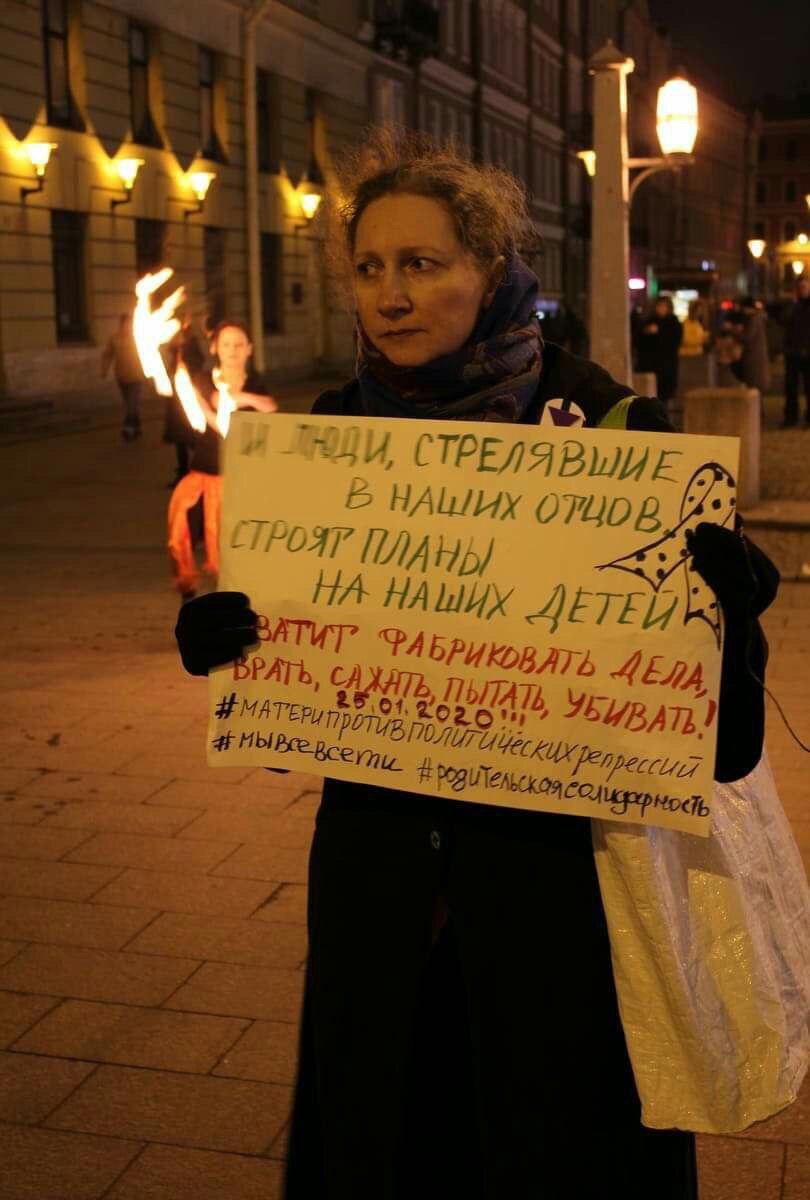 И ЛЮДИ, СТРЕЛЯВШИЕ
В НАШИХ ОТЦОВ,
СТРОЯТ ПЛАНЫ
НА НАШИХ ДЕТЕЙ
ХВАТИТ ФАБРИКОВАТЬ ДЕЛА,
ВРАТЬ, САЖАТЬ, ПЫТАТЬ, УБИВАТЬ!
25.01.2020!!!
#МАТЕРИПРОТИВПОЛИТИЧЕСКИХРЕПРЕССИЙ
#МЫВСЕВСЕТИ #РОДИТЕЛЬСКАЯСОЛИДАРНОСТЬ